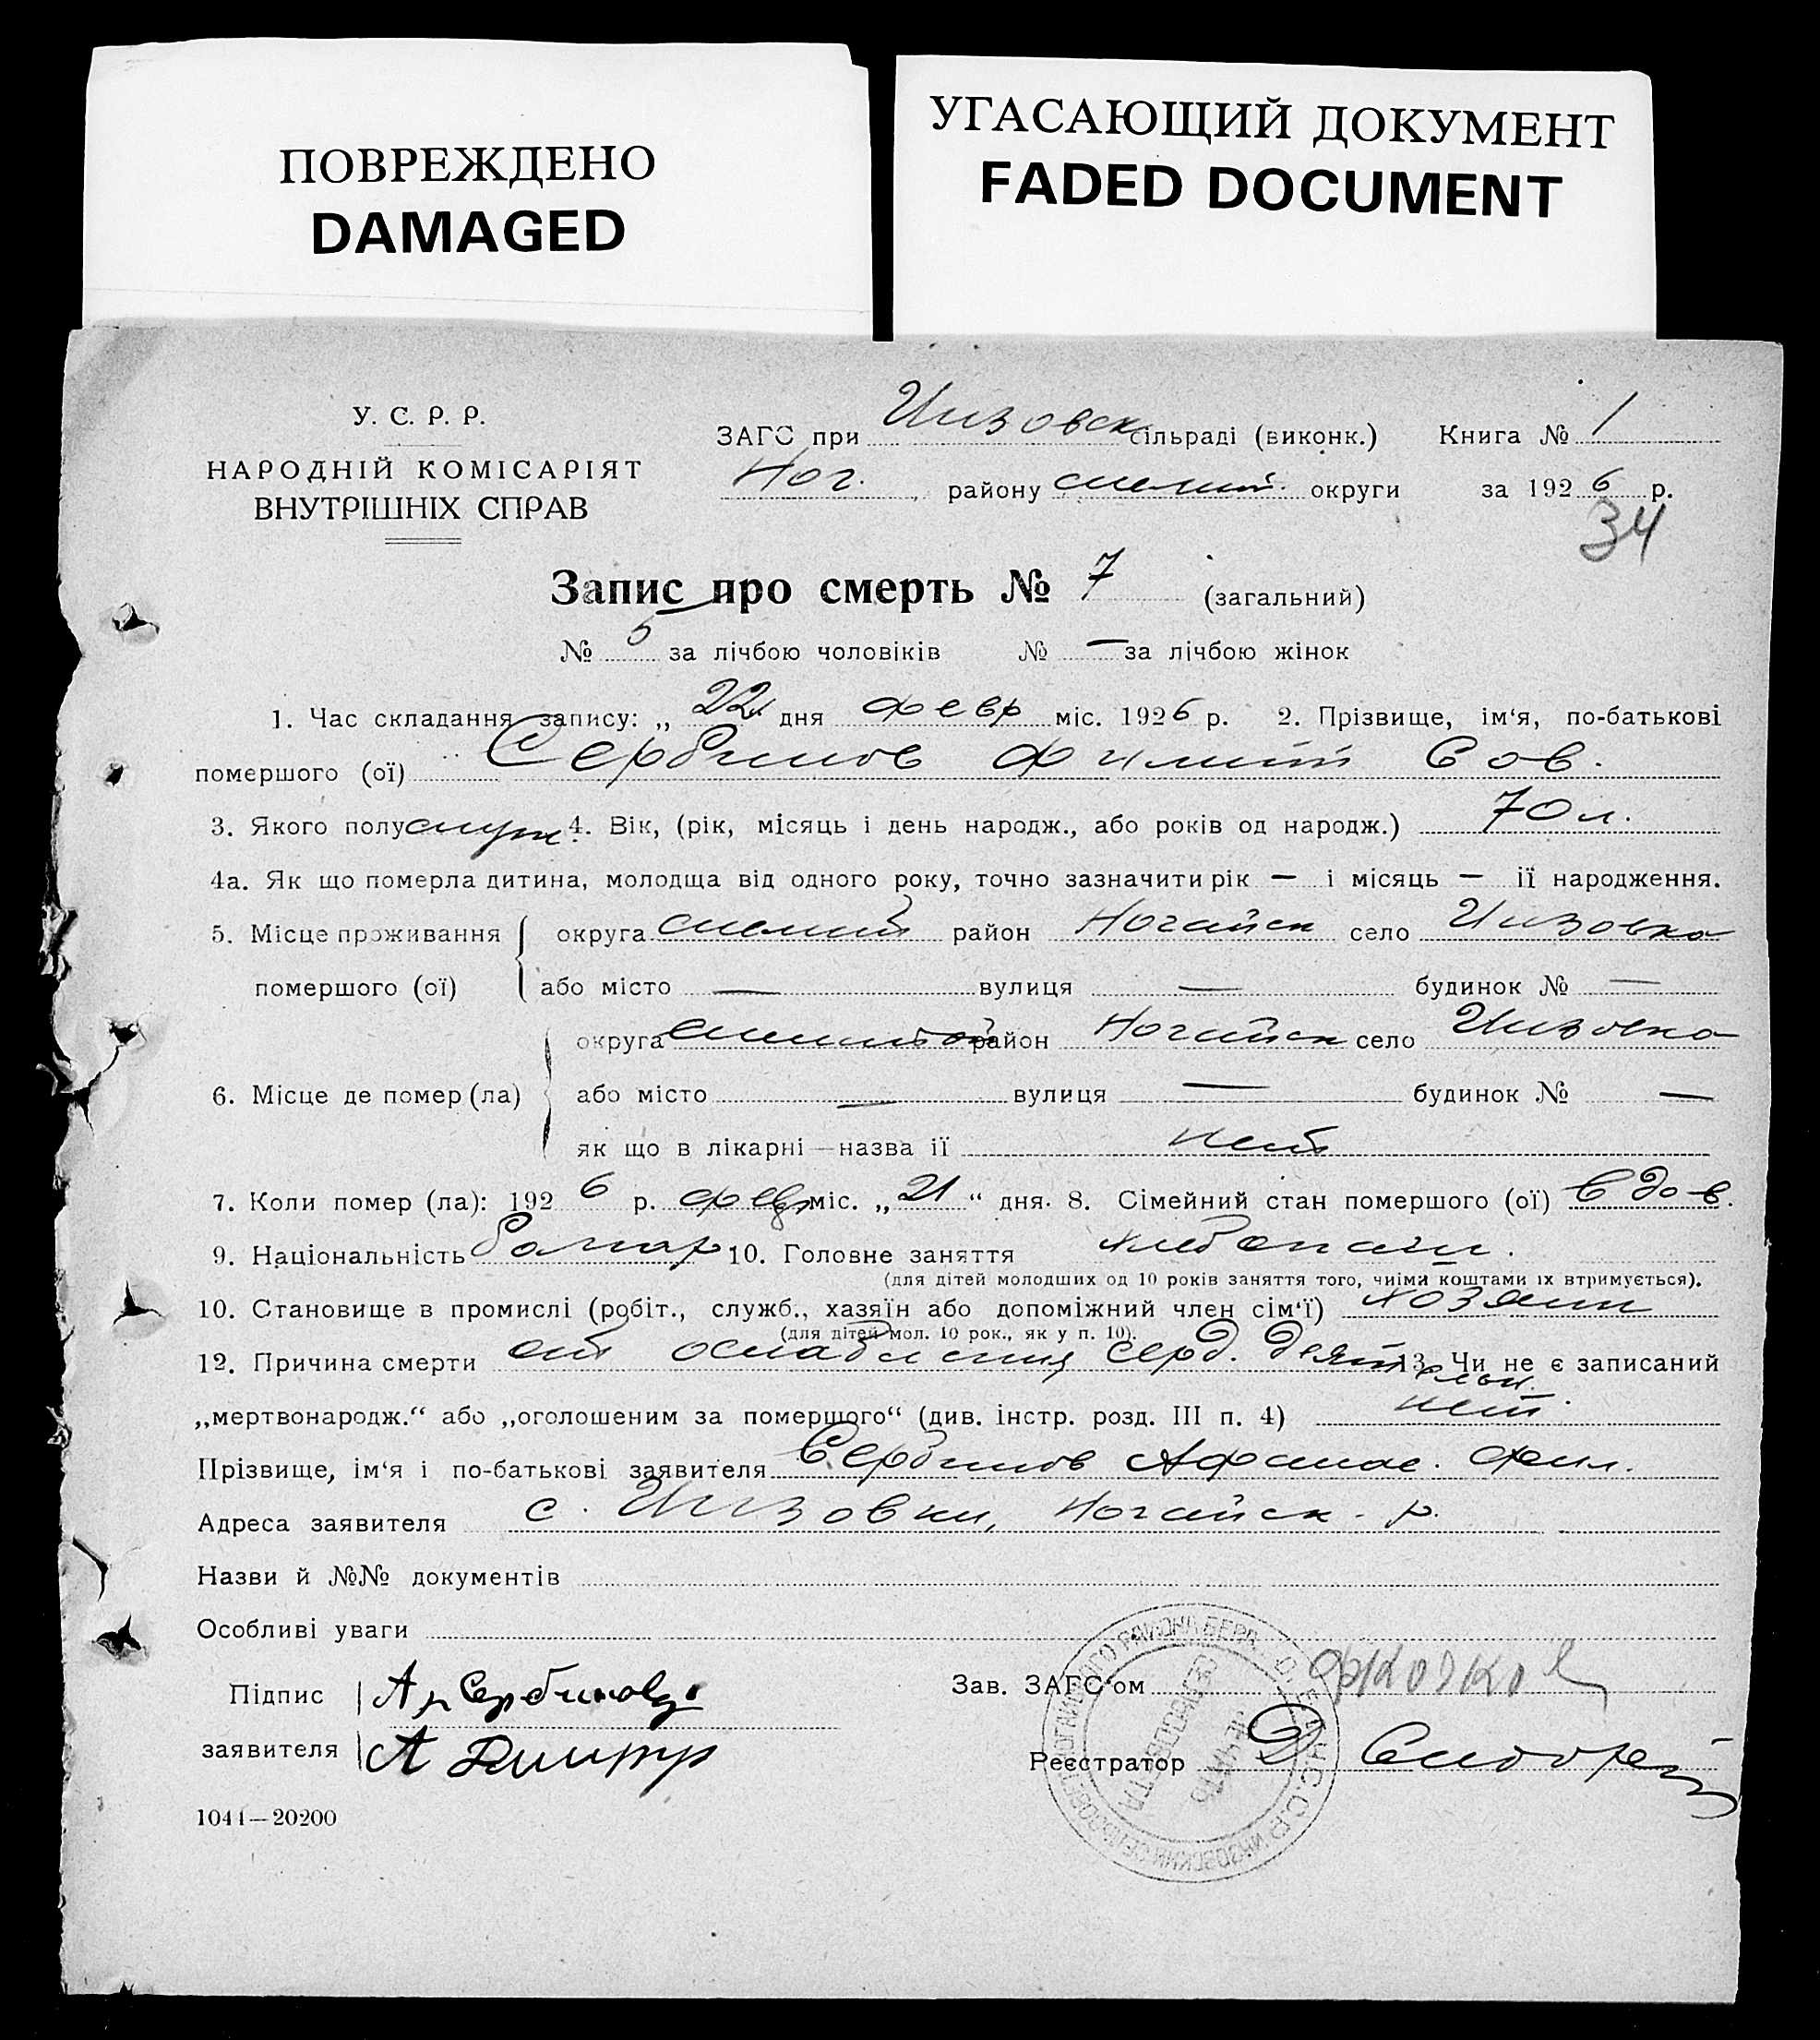 ПОВРЕЖДЕНО
DAMAGED
УГАСАЮЩИЙ ДОКУМЕНТ
FADED DOCUMENT
У. С. Р. Р.
НАРОДНІЙ КОМІСАРІЯТ
ВНУТРІШНІХ СПРАВ
ЗАГС при Инзовск сільраді (виконк.) Книга № 1
Ног. району мелит. округи за 1926 р.
34
Запис про смерть № 7 (загальний)
№ 5 за лічбою чоловіків № — за лічбою жінок
1. Час складання запису: „ 22 дня февр міс. 1926 р. 2. Прізвище, ім‘я, по-батькові
помершого (ої) Сербинов Филипп Сов.
3. Якого полу муж 4. Вік, (рік, місяць і день народж., або років од народж.) 70 л.
4а. Як що померла дитина, молодща від одного року, точно зазначити рік — і місяць — її народження.
5. Місце проживання округа мелит район Ногайск село Инзовка
помершого (ої) або місто — вулиця — будинок № —
округа район Ногайск село Инзовка
6. Місце де помер (ла) або місто — вулиця — будинок № —
як що в лікарні — назва її нет
7. Коли помер (ла): 1926 р. февр міс. „ 21 “ дня. 8. Сімейний стан помершого (ої) вдов.
9. Національність Болгар 10. Головне заняття хлебопаш.
(для дітей молодших од 10 років заняття того, чиїми коштами їх втримується).
10. Становище в промислі (робіт., служб., хазяїн або допоміжний член сім‘ї) хозяин
(для дітей мол. 10 рок., як у п. 10).
12. Причина смерти от ослабления серд. деятельн. 13. Чи не є записаний
„мертвонародж.“ або „оголошеним за померщого“ (див. інстр. розд. III п. 4) нет.
Прізвище, ім‘я і по-батькові заявителя Сербинов Афанас. Фил.
Адреса заявителя с. Инзовки, Ногайск. р.
Назви й №№ документів
Особливі уваги
Підпис
заявителя
Зав. ЗАГС‘ом
Реєстратор Д
1041—20200